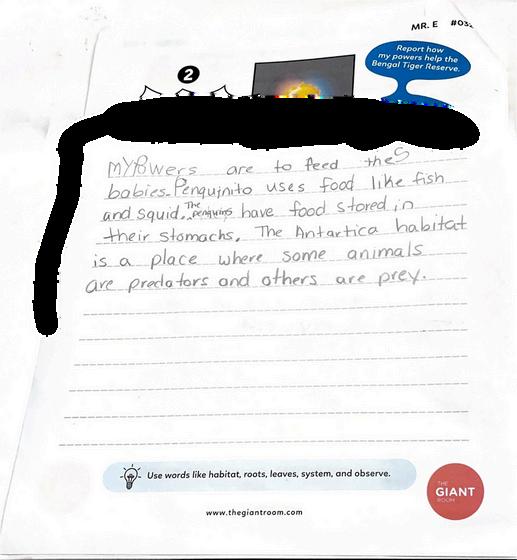 MR. E #03
2
Report how
my powers help the
Bengal Tiger Reserve.
MY Powers are to feed the S
babies. Penguinito uses food like fish
and squid. The penguins have food stored in
their stomachs. The Antartica habitat
is a place where some animals
are predators and others are prey.
Use words like habitat, roots, leaves, system, and observe.
www.thegiantroom.com
THE
GIANT
ROOM